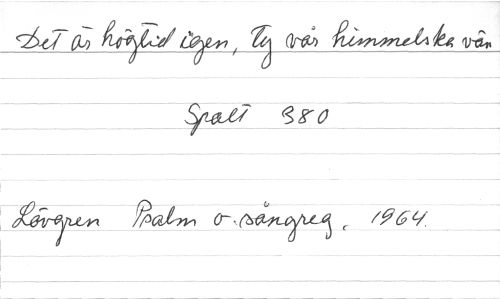 Det är högtid igen, Ty vår himmelska vän
Spalt 380
Lövgren Psalm o. sångreg. 1964.